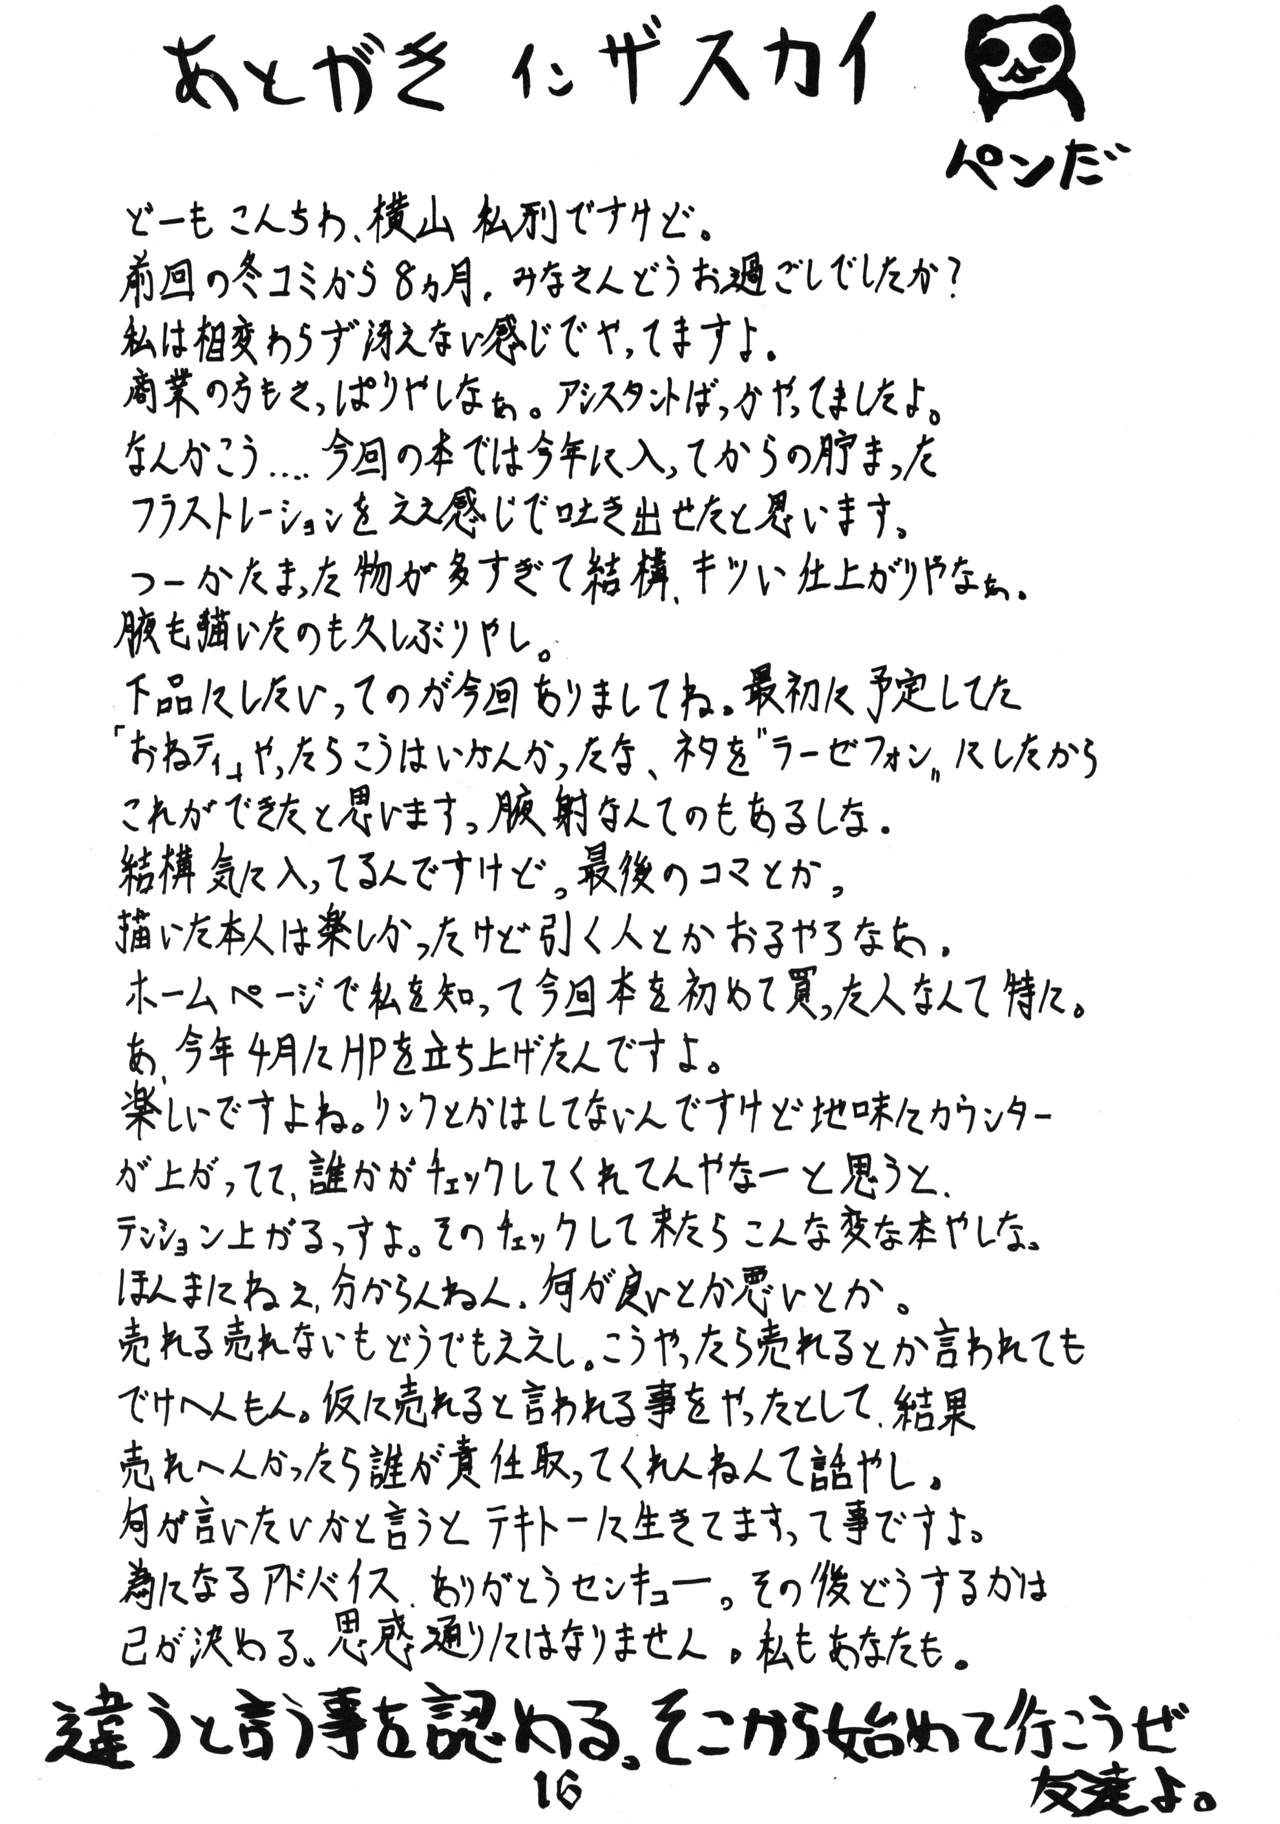 あとがき インザスカイ
ペンだ
どーもこんちわ、横山私刑ですけど。
前回の冬コミから8ヵ月。みなさんどうお過ごしでしたか?
私は相変わらず冴えない感じでやってますよ。
商業の方もさっぱりやしなぁ。アシスタントばっかやってましたよ。
なんかこう....今回の本では今年に入ってからの貯まった
フラストレーションをええ感じで吐き出せたと思います。
つーかたまった物が多すぎて結構、キツい仕上がりやなぁ。
腋も描いたのも久しぶりやし。
下品にしたいってのが今回ありましてね。最初に予定してた
「おねティ」やったらこうはいかんかったな、ネタを"ラーゼフォン"にしたから
これができたと思います。腋射なんてのもあるしな。
結構気に入ってるんですけど。最後のコマとか。
描いた本人は楽しかったけど引く人とかおるやろなあ。
ホームページで私を知って今回本を初めて買った人なんて特に。
あ、今年4月にHPを立ち上げたんですよ。
楽しいですよね。リンクとかはしてないんですけど地味にカウンター
が上がってて、誰かがチェックしてくれてんやなーと思うと、
テンション上がるっすよ。そのチェックして来たらこんな変な本やしな。
ほんまにねぇ、分からんねん。何が良いとか悪いとか。
売れる売れないもどうでもええし。こうやったら売れるとか言われても
でけへんもん。仮に売れると言われる事をやったとして、結果
売れへんかったら誰が責任取ってくれんねんて話やし。
何が言いたいかと言うとテキトーに生きてますって事ですよ。
為になるアドバイス、ありがとうセンキュー。その後どうするかは
己が決める。思惑通りにはなりません。私もあなたも。
違うと言う事を認める。そこから始めて行こうぜ
友達よ。
16